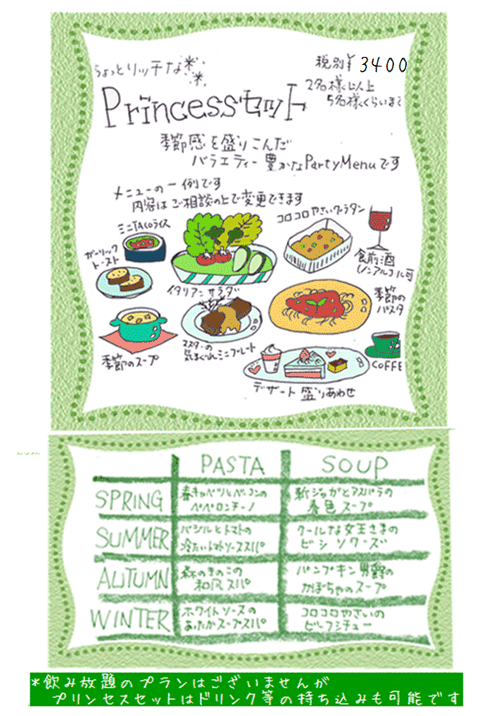 ちょっとリッチな
税別¥3400
Princessセット
2名様以上
5名様くらいまで
季節感を盛りこんだ
バラエティー豊かなPartyMenuです
メニューの一例です
内容はご相談の上で変更できます
ミニTACOライス
コロコロやさいグラタン
ガーリック
トースト
イタリアンサラダ
食前酒
(ノンアルコール可
季節の
パスタ
季節のスープ
マスターの
気まぐれミニプレート
COFFE
デザート盛りあわせ
PASTA SOUP
SPRING 春キャベツとベーコンの
ペペロンチーノ
新ジャガとアスパラの
春色スープ
SUMMER バジルとトマトの
冷たいトマトソーススパ
クールな女王さまの
ビシソワーズ
AUTUMN 森のきのこの
和風スパ
パンプキン男爵の
かぼちゃのスープ
WINTER ホワイトソースの
あったかスープスパ
コロコロやさいの
ビーフシチュー
*飲み放題のプランはございませんが
プリンセスセットはドリンク等の持ち込みも可能です